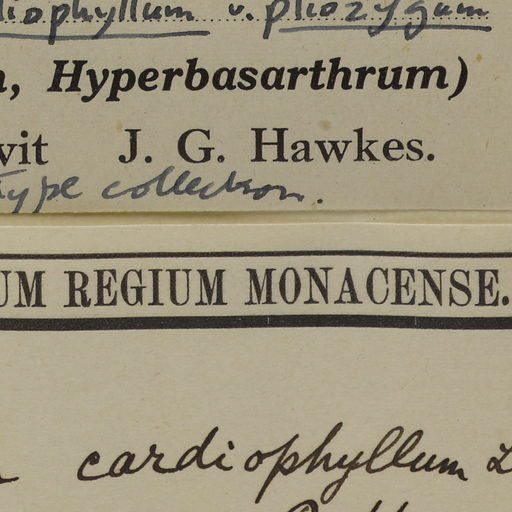 diophyllum v. pliozygum
Hyperbasarthrum)
vit J. G. Hawkes.
Type collection.
UM REGIUM MONACENSE.
cardiophyllum